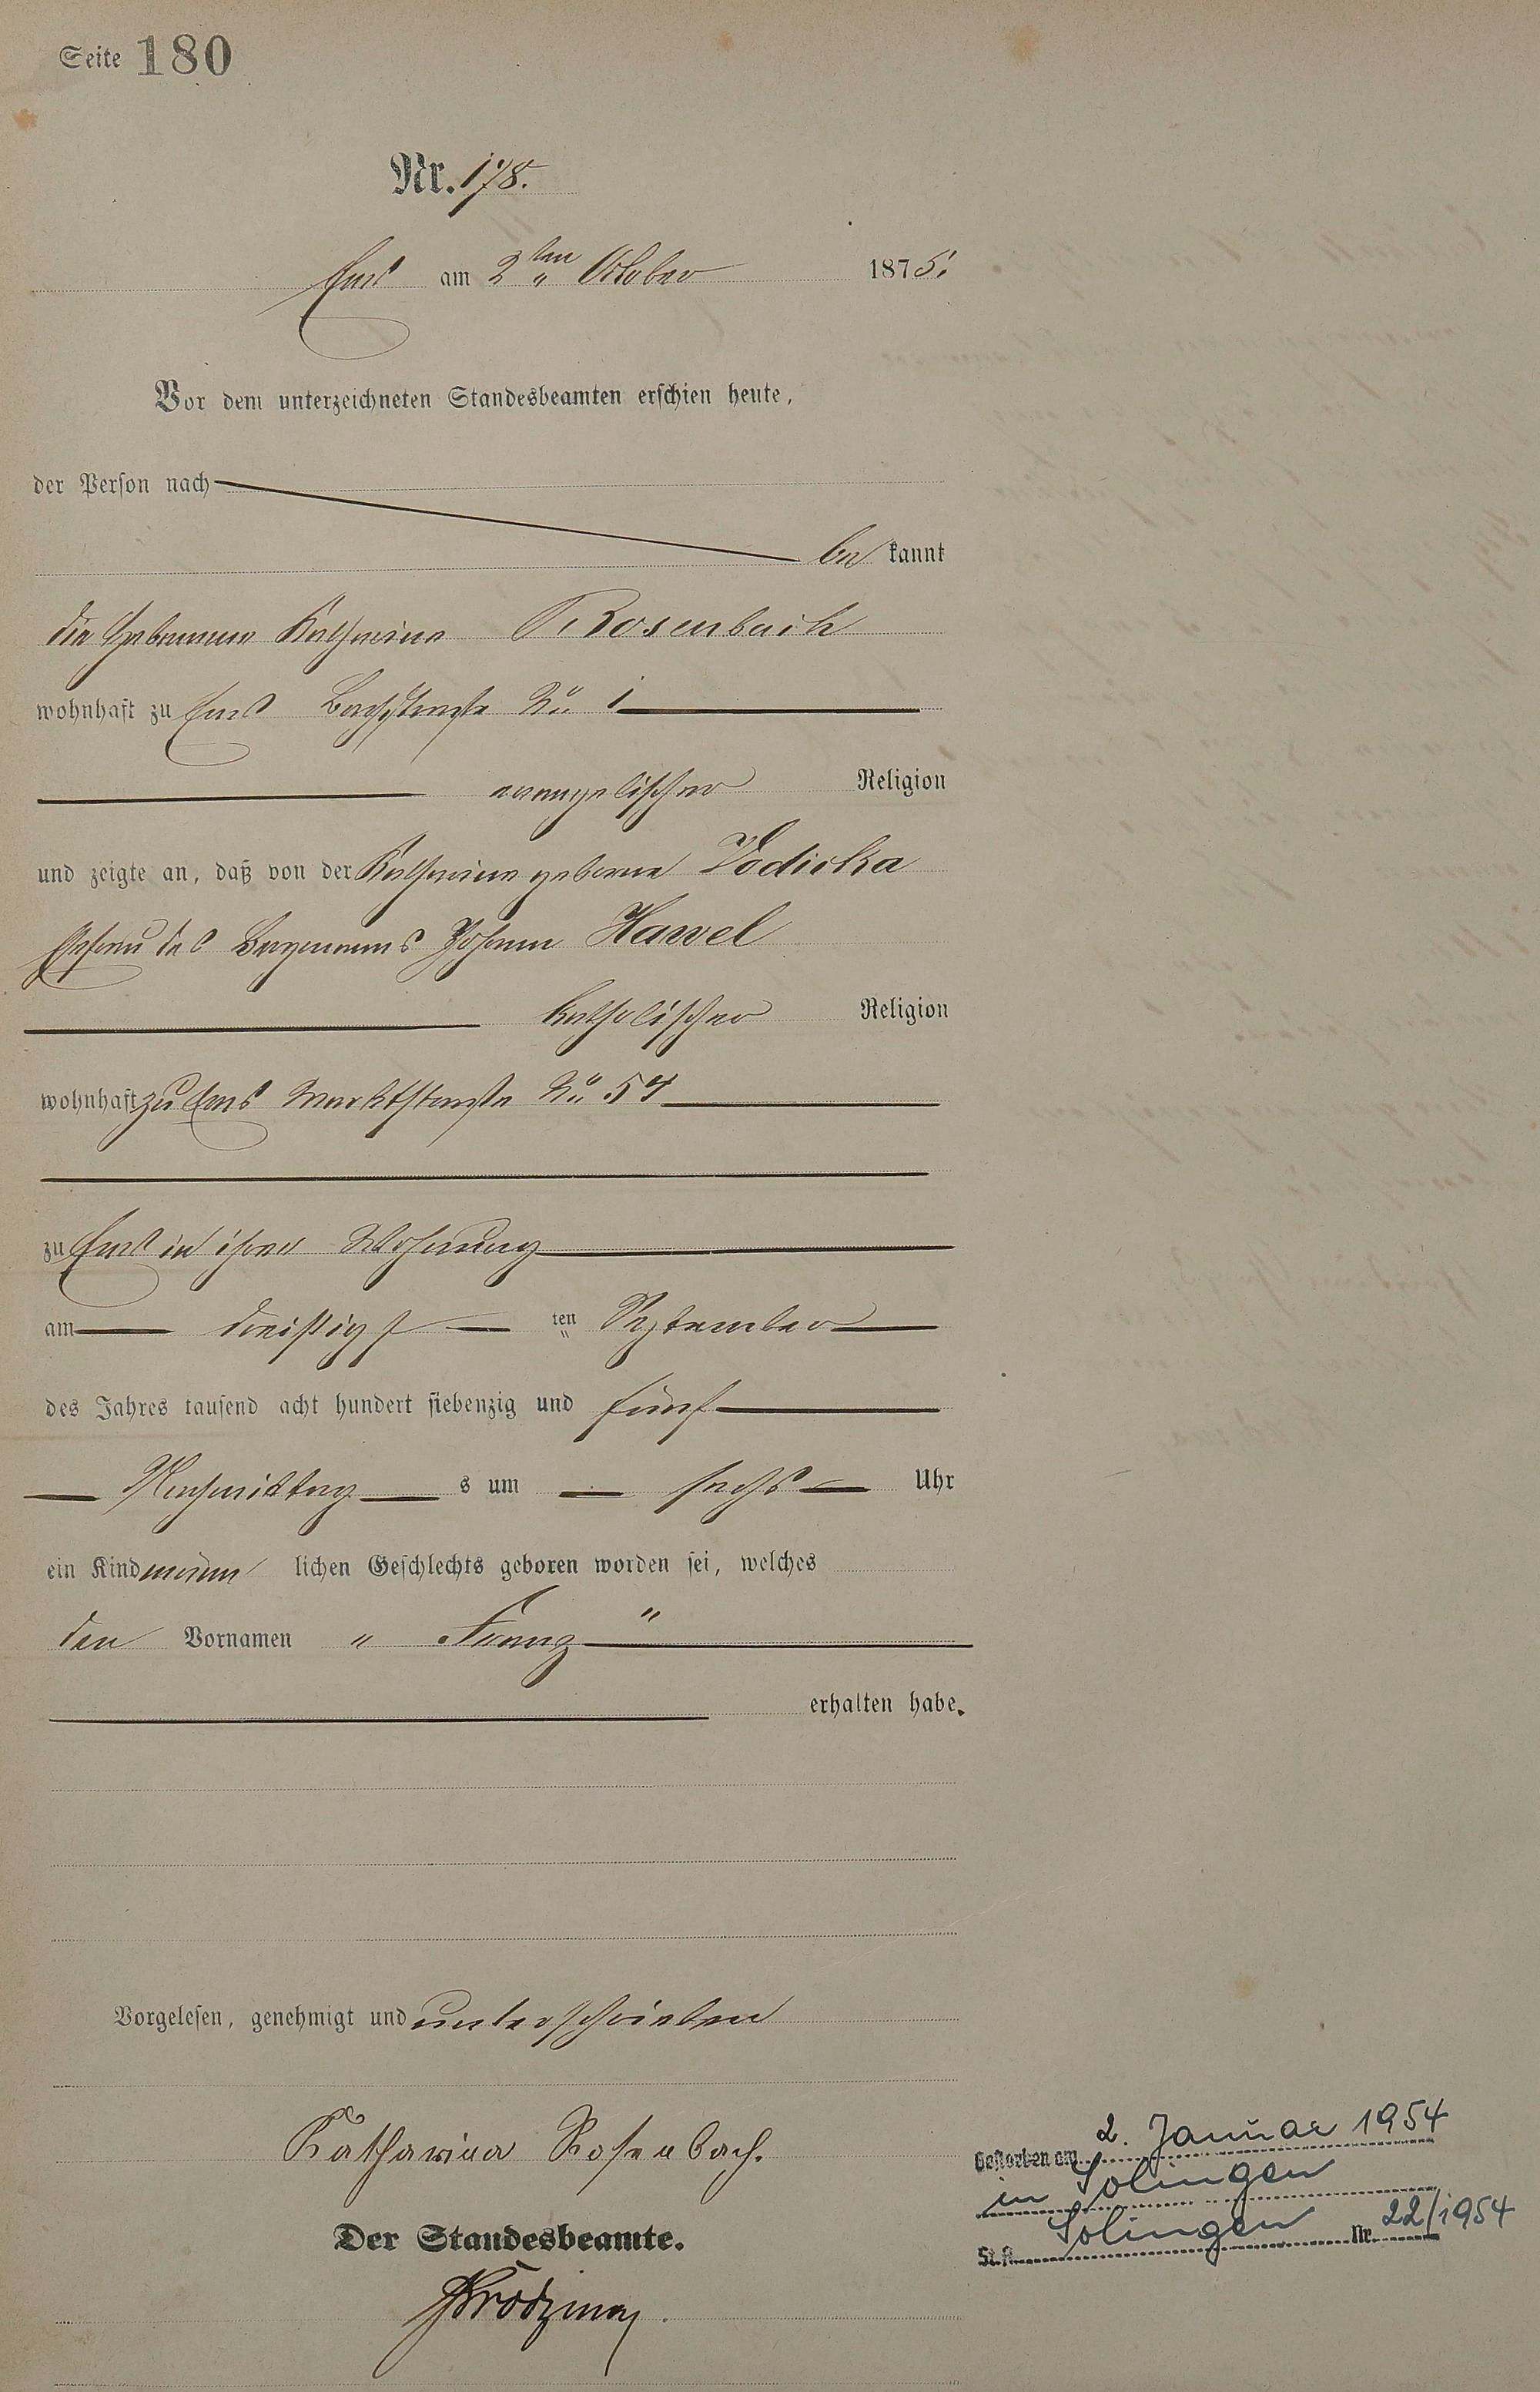 Seite 180
Nr. 178.
Ems am 2ten October 1875.
Vor dem unterzeichneten Standesbeamten erschien heute,
der Person nach
be kannt
die Hebamme Katharina Rosenbach
wohnhaft zu Ems Bachstraße No 1
evangelischer Religion
und zeigte an, daß von der Katharina geborne Vodicka
Ehefrau des Bergmanns Johann Hawel
katholischer Religion
wohnhaft zu Ems Marktstraße No 57
zu Ems in ihrer Wohnung
am dreißigs ten September
des Jahres tausend acht hundert siebenzig und fünf
Nachmittag s um sechs Uhr
ein Kind männ lichen Geschlechts geboren worden sei, welches
den Vornamen " Franz "
erhalten habe.
Vorgelesen, genehmigt und unterschrieben
Katharina Rosenbach.
Der Standesbeamte.
Gestorben am 2. Januar 1954
in Solingen
St.A. Solingen Nr. 22/1954